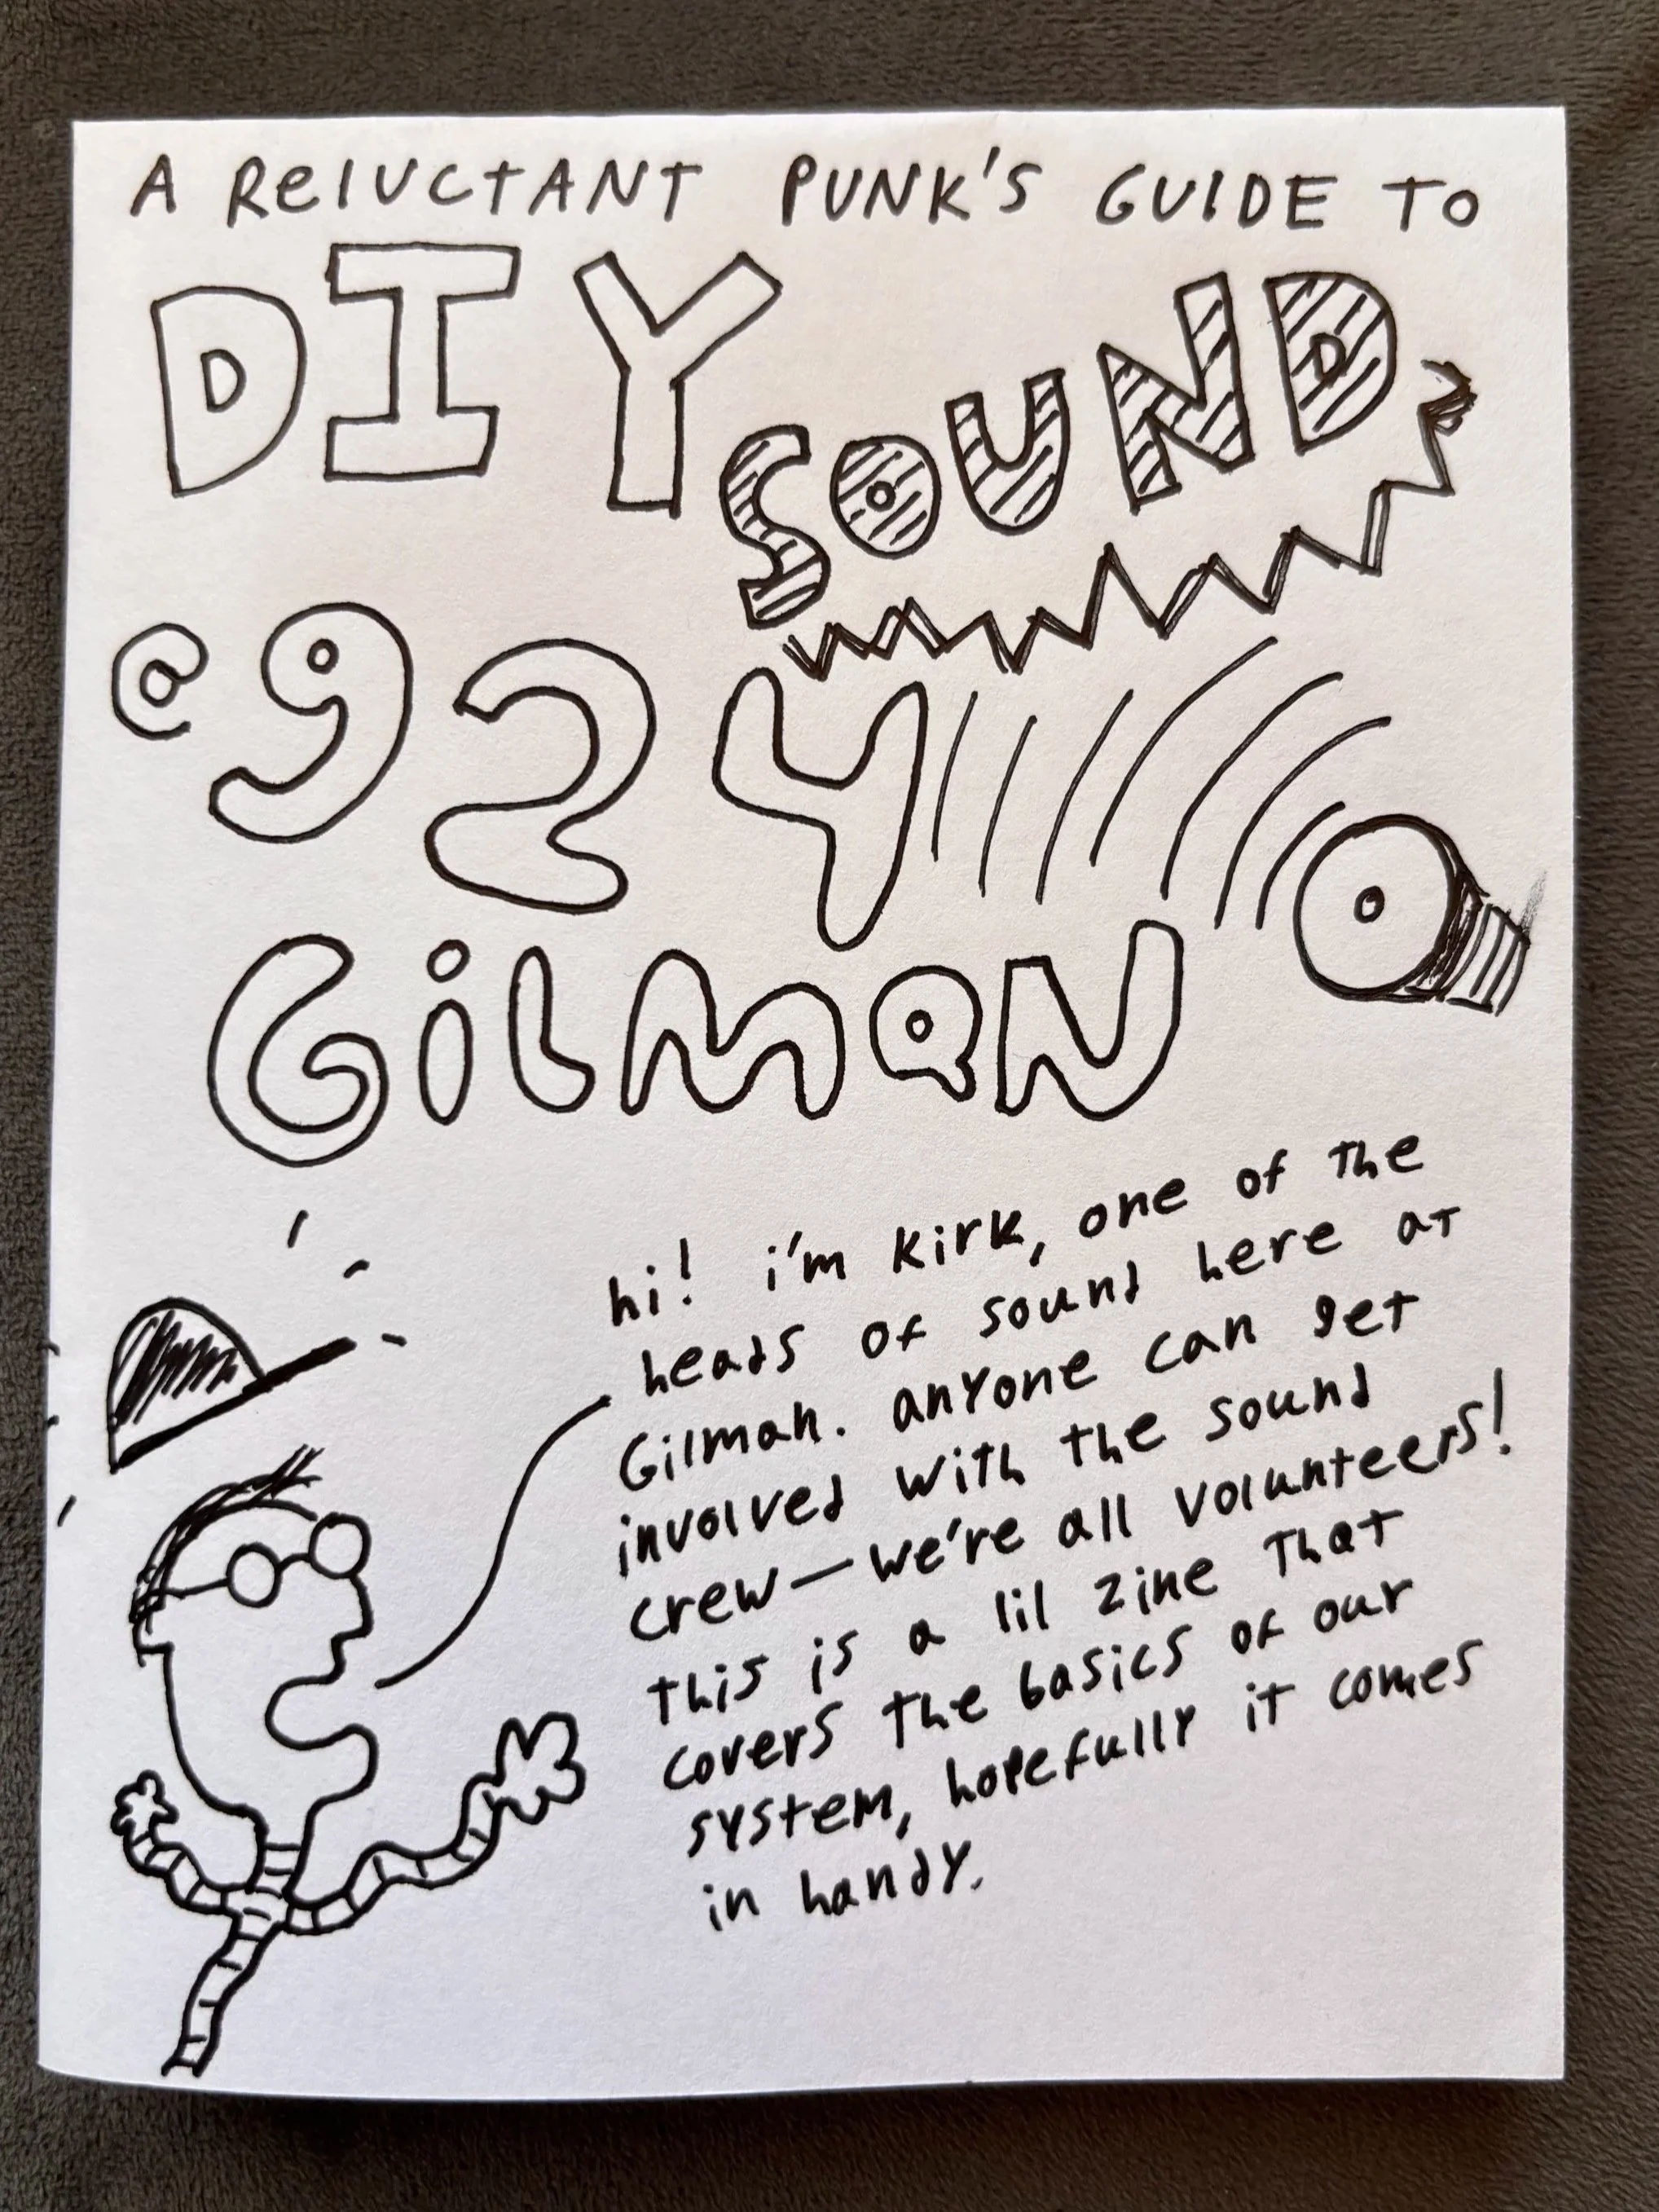 A ReLUCTANT PUNK'S GUIDE TO
DIY SOUND
@ 924
GiLMAN
hi! i'm Kirk, one of the
heads of sound here at
Gilman. anyone can get
involved with the sound
crew—we're all volunteers!
this is a lil zine that
covers the basics of our
system, hopefully it comes
in handy.